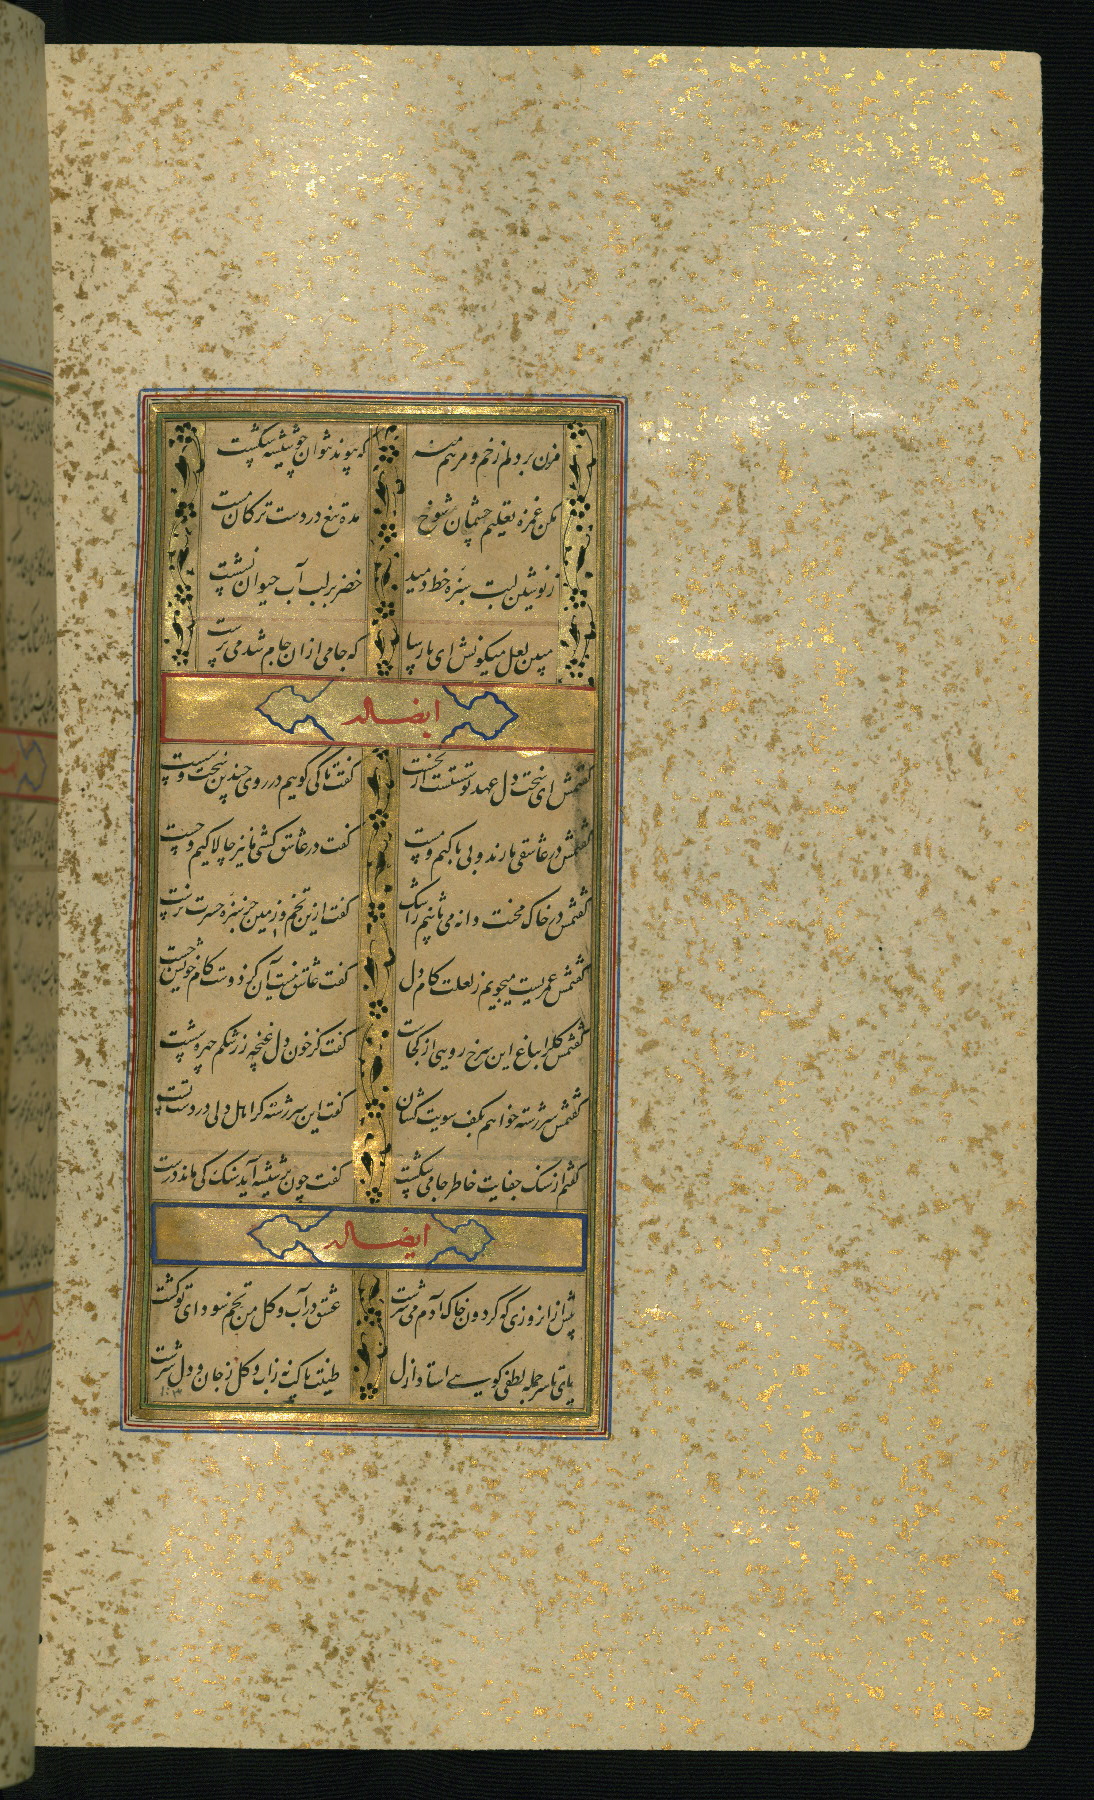 مزن بر دلم زخم و مرهم منه که پیوند نتوان چو شیشه شکست
مکن غمزه تعلیم چشمان شوخ مده تیغ در دست ترکان مست
ز نوشین لبت سبزه خط دمید خضر بر لب آب حیوان نشست
مبین لعل میگونش ای پارسا که جامی ازان جام شد می پرست
ایضا له
گفتمش ای سخت دل عهد تو سستست از نخست گفت تا کی گویم در روی چندین سخت و سست
گفتمش در عاشقی ما رند و بی باکیم و مست گفت در عاشق کشی ما نیز چالاکیم و چست
گفتمش در خاک محنت دانه می پاشم ز اشک گفت ازین تخم و زمین جز سبزه حسرت نرست
گفتمش عمریست میجویم ز لعلت کام دل گفت عاشق نیست آن کز دوست کام خویش جست
گفتمش گل را بباغ این سرخ رویی از کجاست گفت کز خون دل غنچه ز رشکم چهره شست
گفتمش سررشته خواهم بکف سویت کشان گفت این سررشته گر اهل دلی در دست تست
گفتم از سنگ جفایت خاطر جامی شکست گفت چون بر شیشه آید سنگ کی ماند درست
ایضا له
پیش از ان روزی که گردون خاک آدم می سرشت عشق در آب و گل من تخم سودای تو کشت
پای تا سر جمله لطفی گوییا استاد ازل طینت پاکت نه زاب و گل ز جان و دل سرشت